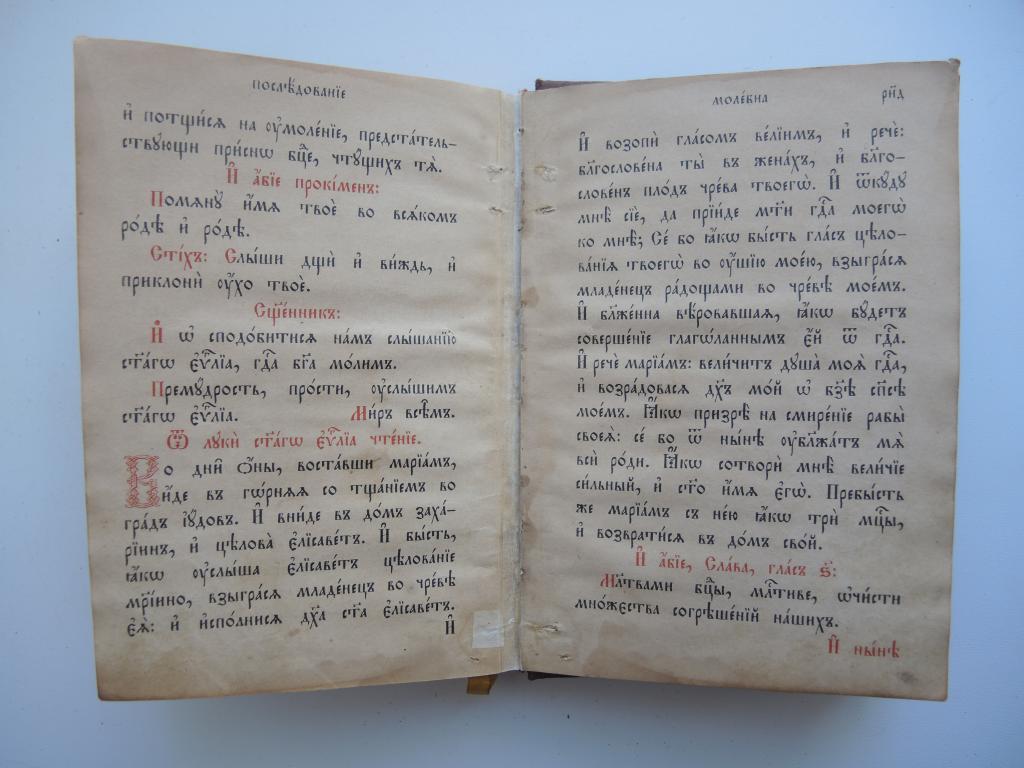 послѣ́дованїе
и҆ потщи́сѧ на ᲂу҆моле́нїе, предста́тель-
ствꙋющи при́снѡ бцⷣе, чтꙋ́щихъ тѧ̀.
И҆ а҆́бїе прокі́менъ:
Помѧнꙋ̀ и҆́мѧ твоѐ во всѧ́комъ
ро́дѣ и҆ ро́дѣ.
Сті́хъ: Слы́ши дщѝ и҆ ви́ждь, и҆
приклонѝ ᲂу҆́хо твоѐ.
Сщ҃е́нникъ:
И҆ ѡ҆ сподо́битисѧ на́мъ слы́шанїю
ст҃а́гѡ є҆ѵⷢ҇лїа, гдⷭ҇а бг҃а мо́лимъ.
Премꙋ́дрость, про́сти, ᲂу҆слы́шимъ
ст҃а́гѡ є҆ѵⷢ҇лїа. Ми́ръ всѣ̑мъ.
Ѿ лꙋкѝ ст҃а́гѡ є҆ѵⷢ҇лїа чте́нїе.
Во днѝ ѻ҆́ны, воста́вши марїа́мъ,
и҆́де въ гѡ́рнѧѧ со тща́нїемъ во
гра́дъ і҆ꙋ́довъ. И҆ вни́де въ до́мъ заха́-
рїинъ, и҆ цѣлова̀ є҆лїсаве́тъ. И҆ бы́сть,
ꙗ҆́кѡ ᲂу҆слы́ша є҆лїсаве́тъ цѣлова́нїе
мр҃і́ино, взыгра́сѧ младе́нецъ во чре́вѣ
є҆ѧ̀: и҆ и҆спо́лнисѧ дх҃а ст҃а є҆лїсаве́тъ.
И҆
моле́бна
рн҃д
И҆ возопѝ гла́сомъ ве́лїимъ, и҆ речѐ:
блг҃ослове́на ты̀ въ жена́хъ, и҆ блг҃о-
слове́нъ пло́дъ чре́ва твоегѡ̀. И҆ ѿкꙋ́дꙋ
мнѣ̀ сїѐ, да прїи́де мт҃и гдⷭ҇а моегѡ̀
ко мнѣ̀; Се́ бо ꙗ҆́кѡ бы́сть гла́съ цѣло-
ва́нїѧ твоегѡ̀ во ᲂу҆́шїю мое́ю, взыгра́сѧ
младе́нецъ ра́дощами во чре́вѣ мое́мъ.
И҆ бл҃же́нна вѣ́ровавшаѧ, ꙗ҆́кѡ бꙋ́детъ
соверше́нїе глаго́ланнымъ є҆́й ѿ гдⷭ҇а.
И҆ речѐ марїа́мъ: вели́читъ дꙋша̀ моѧ̀ гдⷭ҇а,
и҆ возра́довасѧ дх҃ъ мо́й ѡ҆ бз҃ѣ сп҃сѣ
мое́мъ. Ꙗ҆́кѡ призрѣ̀ на смире́нїе рабы̀
своеѧ̀: се́ бо ѿ ны́нѣ ᲂу҆бл҃жа́тъ мѧ̀
всѝ ро́ди. Ꙗ҆́кѡ сотворѝ мнѣ̀ вели́чїе
си́льный, и҆ ст҃о и҆́мѧ є҆гѡ̀. Пребы́сть
же марїа́мъ съ не́ю ꙗ҆́кѡ трѝ мцⷭ҇ы,
и҆ возврати́сѧ въ до́мъ сво́й.
И҆ а҆́бїе, Сла́ва, гла́съ ѕ҃:
Мл҃твами бцⷣы, млⷭ҇тиве, ѡ҆чи́сти
мно́жєства согрѣше́нїй на́шихъ.
И҆ ны́нѣ